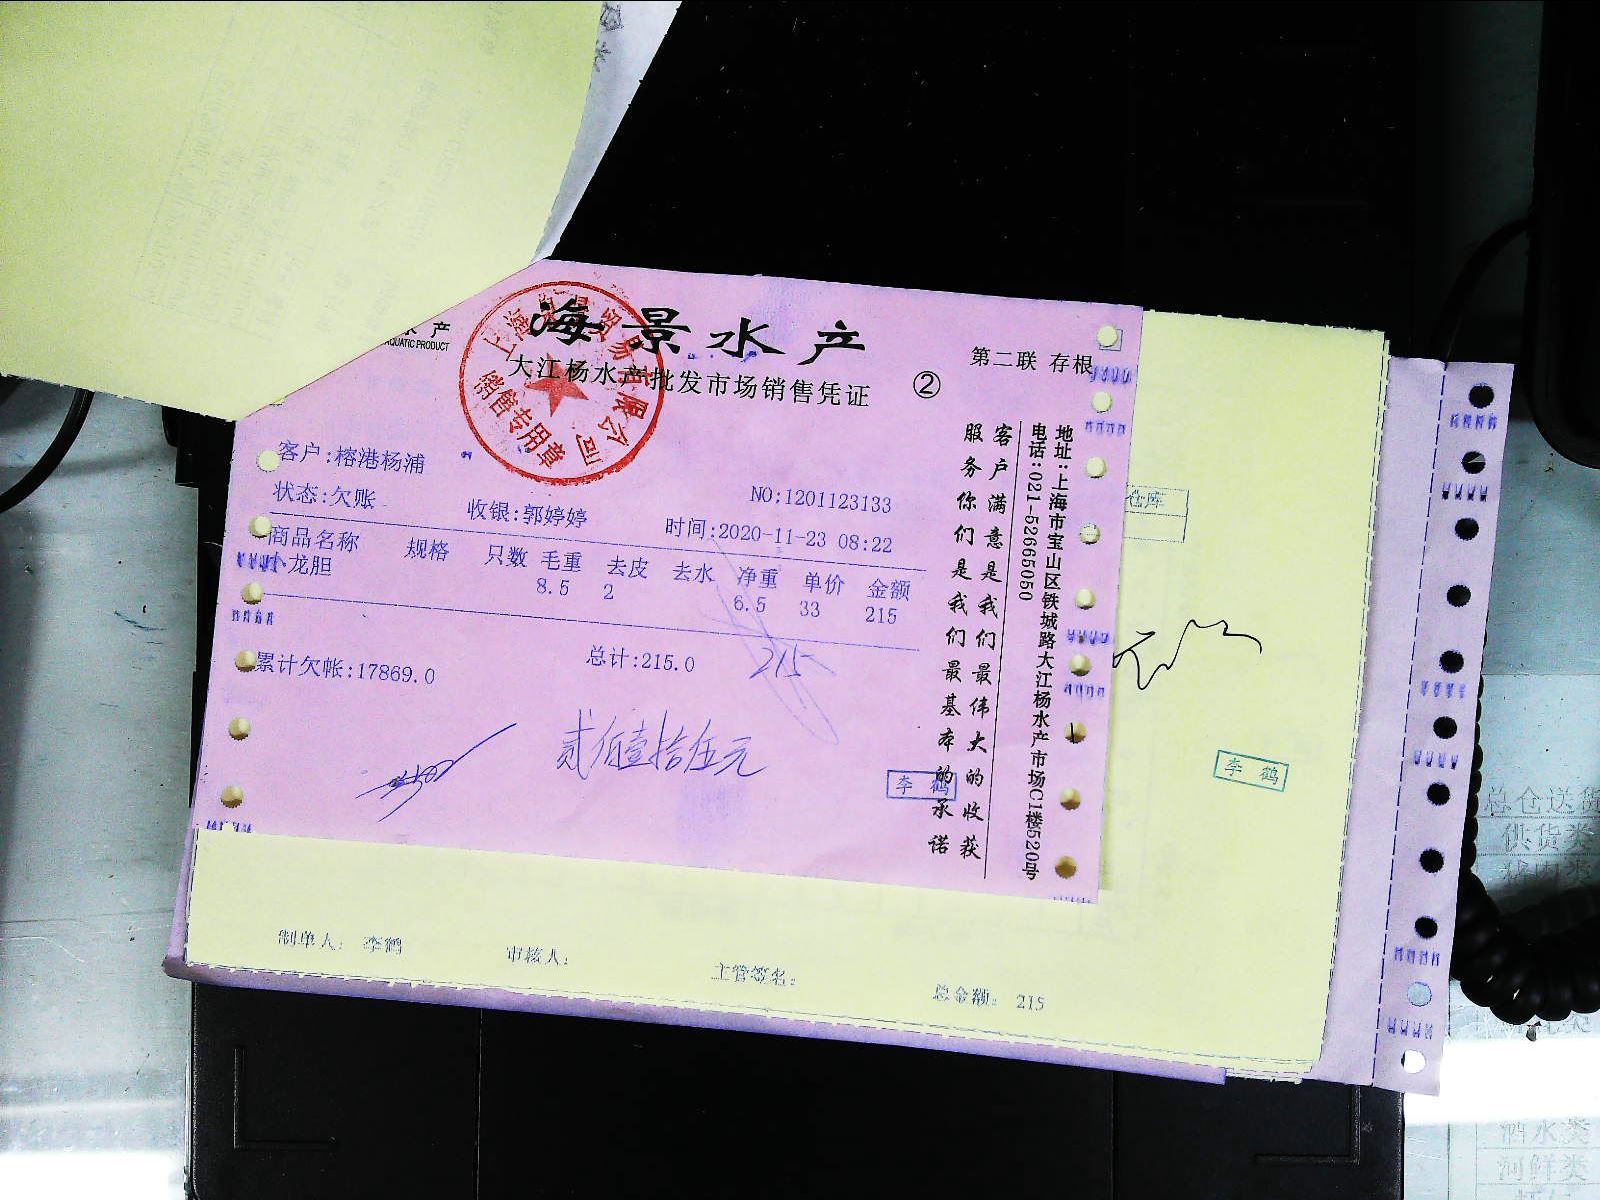 水产
AQUATIC PRODUCT
海景水产
大江杨水产批发市场销售凭证
②
第二联 存根
销售专用章
客户:榕港杨浦
NO:1201123133
状态:欠账
收银:郭婷婷
时间:2020-11-23 08:22
商品名称 规格 只数 毛重 去皮 去水 净重 单价 金额
小龙胆 8.5 2 6.5 33 215
累计欠帐:17869.0
总计:215.0
215
贰佰壹拾伍元
李鹤
客户满意是我们最伟大的收获
服务你们是我们最基本的承诺
地址:上海市宝山区铁城路大江杨水产市场C1楼520号
电话:021-52665050
仓库
李鹤
制单人: 李鹤
审核人:
主管签名:
总金额: 215
总仓送货
供货类
酒水类
河鲜类